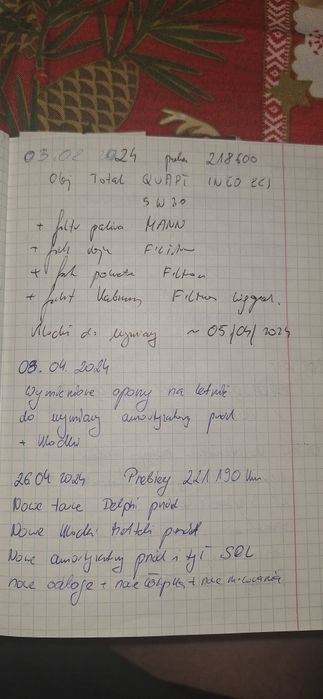 03.02 2024 przeb 218600
Olej Total QUARTZ INEO ECS
5W30
+ filtr paliwa MANN
+ filt oleju Filtron
+ filt powietrza Filtron
+ filtr Kabinowy Filtron węglowy.
Klocki do wymiany ~ 05/04/2024
03.04.2024
Wymienione opony na letnie
do wymiany amortyzatory przód
+ Klocki
26 04 2024 Przebieg 221190 km
Nowe tarcze Delphi przód
Nowe Klocki przód
Nowe amortyzatory przód i tył
nowe + nowe + nowe